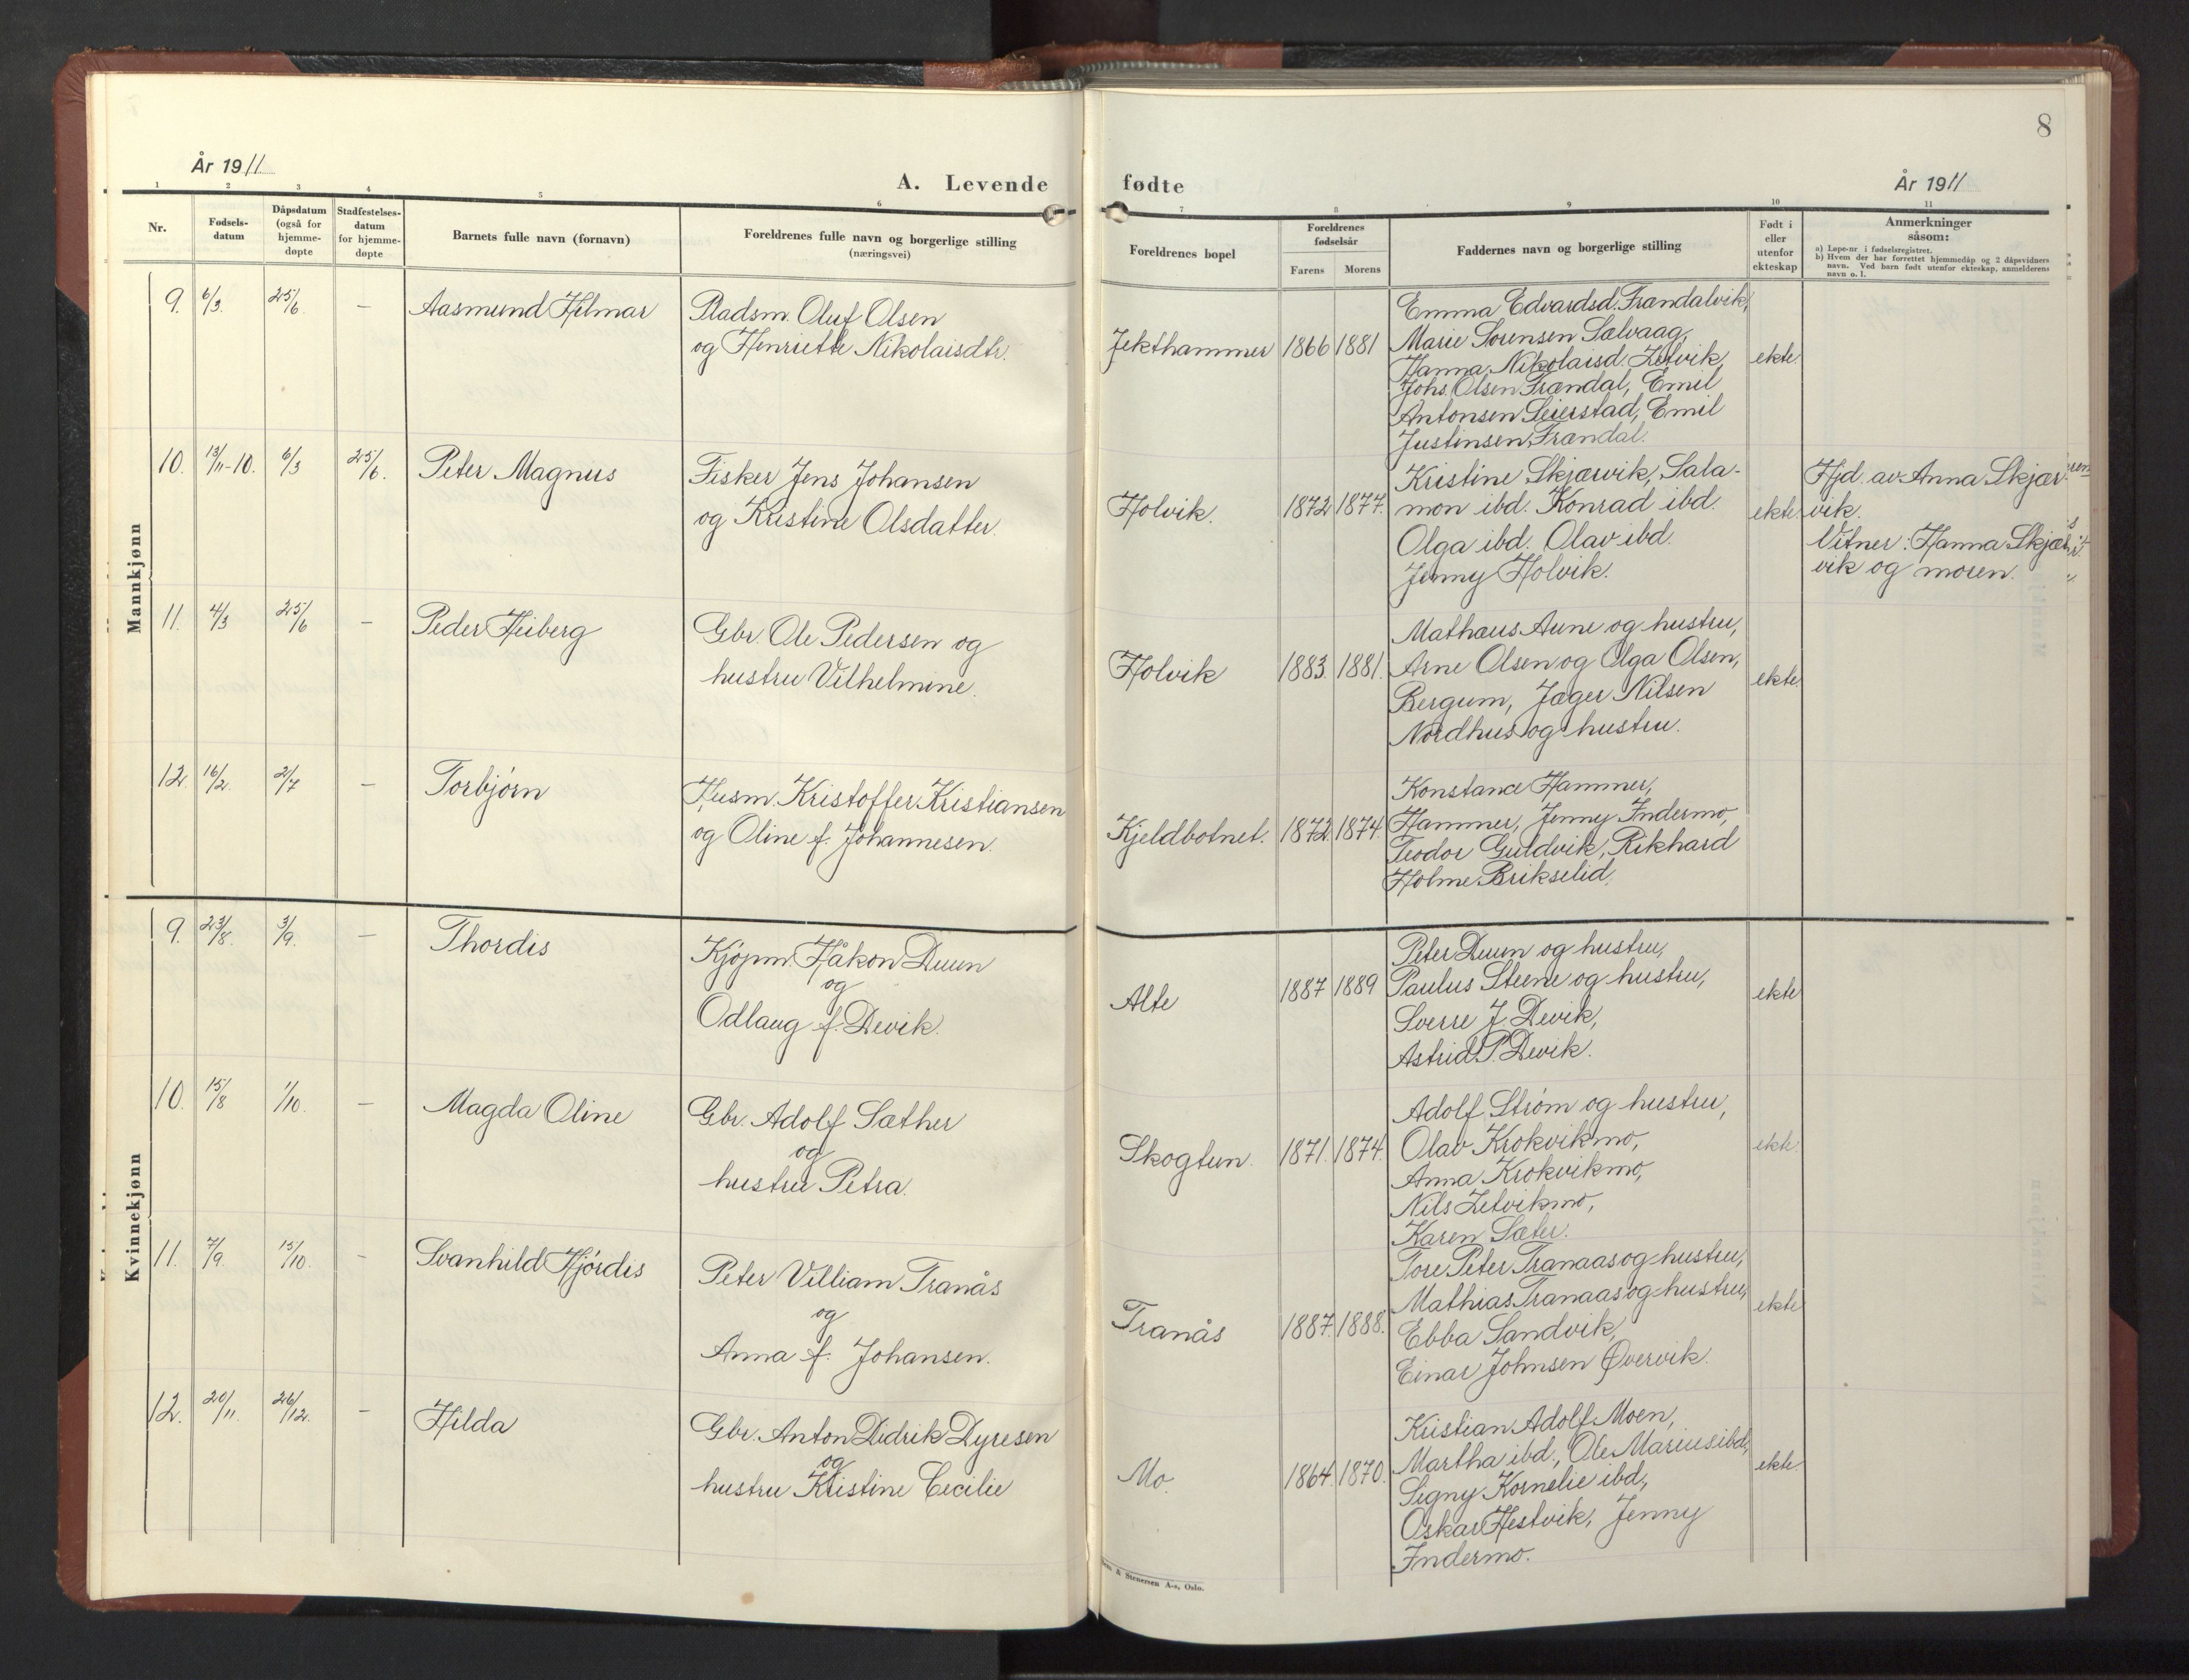 8
År 1911
A. Levende
fødte
År 1911
1 2 3 4 5 6 7 8 9 10 11
Nr.
Fødsels-
datum
Dåpsdatum
(også for
hjemme-
døpte
Stadfestelses-
datum
for hjemme-
døpte
Barnets fulle navn (fornavn)
Foreldrenes fulle navn og borgerlige stilling
(næringsvei)
Foreldrenes bopel
Foreldrenes
fødselsår
Farens Morens
Faddernes navn og borgerlige stilling
Født i
eller
utenfor
ekteskap
Anmerkninger
såsom:
a) Løpe-nr i fødselsregistret.
b) Hvem der har forrettet hjemmedåp og 2 dåpsvidners
navn. Ved barn født utenfor ekteskap, anmelderens
navn o. l.
Mannkjønn
9. 6/3. 25/6. — Aasmund Hilmar
Pladsm. Oluf Olsen
og Henriette Nikolaisdtr.
Jekthammer 1866 1881
Emma Edvardsd. Frændalvik,
Marie Sørensen Sælvaag,
Hanna Nikolaisd. Zetvik,
Johs. Olsen Frændal, Emil
Antonsen Seierstad, Emil
Justinsen Frændal.
ekte.
10. 13/11-10. 6/3 25/6. Peter Magnus
Fisker Jens Johansen
og Kristine Olsdatter.
Holvik. 1872 1877.
Kristine Skjærvik, Sala-
mon ibd. Konrad ibd.
Olga ibd. Olav ibd.
Jenny Holvik.
ekte.
Hjd. av Anna Skjær-
vik.
Vitner: Hanna Skjær-
vik og moren.
11. 4/3 25/6 — Peder Heiberg
Gbr. Ole Pedersen og
hustru Vilhelmine.
Holvik 1883. 1881.
Mathæus Aune og hustru,
Arne Olsen og Olga Olsen,
Bergum, Jæger Nilsen
Nordhus og hustru.
ekte.
12. 16/2. 2/7 — Torbjørn
Husm. Kristoffer Kristiansen
og Oline f. Johannesen.
Kjeldbotnet. 1872. 1874.
Konstance Hammer,
Hammer, Jenny Indermo,
Teodor Guldvik, Rikhard
Holme Brikselid.
Kvinnekjønn
9. 23/8. 3/9. — Thordis
Kjøpm. Håkon Duun
og
Odlaug f. Devik.
Alte 1887 1889
Peter Duun og hustru,
Paulus Steene og hustru,
Sverre J. Devik,
Astrid P. Devik.
ekte
10. 15/8 1/10. — Magda Oline
Gbr. Adolf Sæther
og
hustru Petra.
Skogtun. 1871. 1874.
Adolf Strøm og hustru,
Olav Krokvikmo,
Anna Krokvikmo,
Nils Zetvikmo,
Karen Sæter.
ekte.
11. 7/9. 15/10. — Svanhild Hjørdis
Peter Villiam Tranås
og
Anna f. Johansen.
Tranås 1887. 1888.
Tore Peter Tranaas og hustru,
Mathias Tranaas og hustru,
Ebba Sandvik,
Einar Johnsen Øvervik.
ekte
12. 20/11. 26/12. — Hilda
Gbr. Anton Didrik Dyresen
og
hustru Kristine Cecilie
Mo. 1864. 1870.
Kristian Adolf Moen,
Martha ibd., Ole Marius ibd.,
Signy Kornelie ibd.,
Oskar Hestvik, Jenny
Indermo.
ekte.
& Stenersen A-s, Oslo.